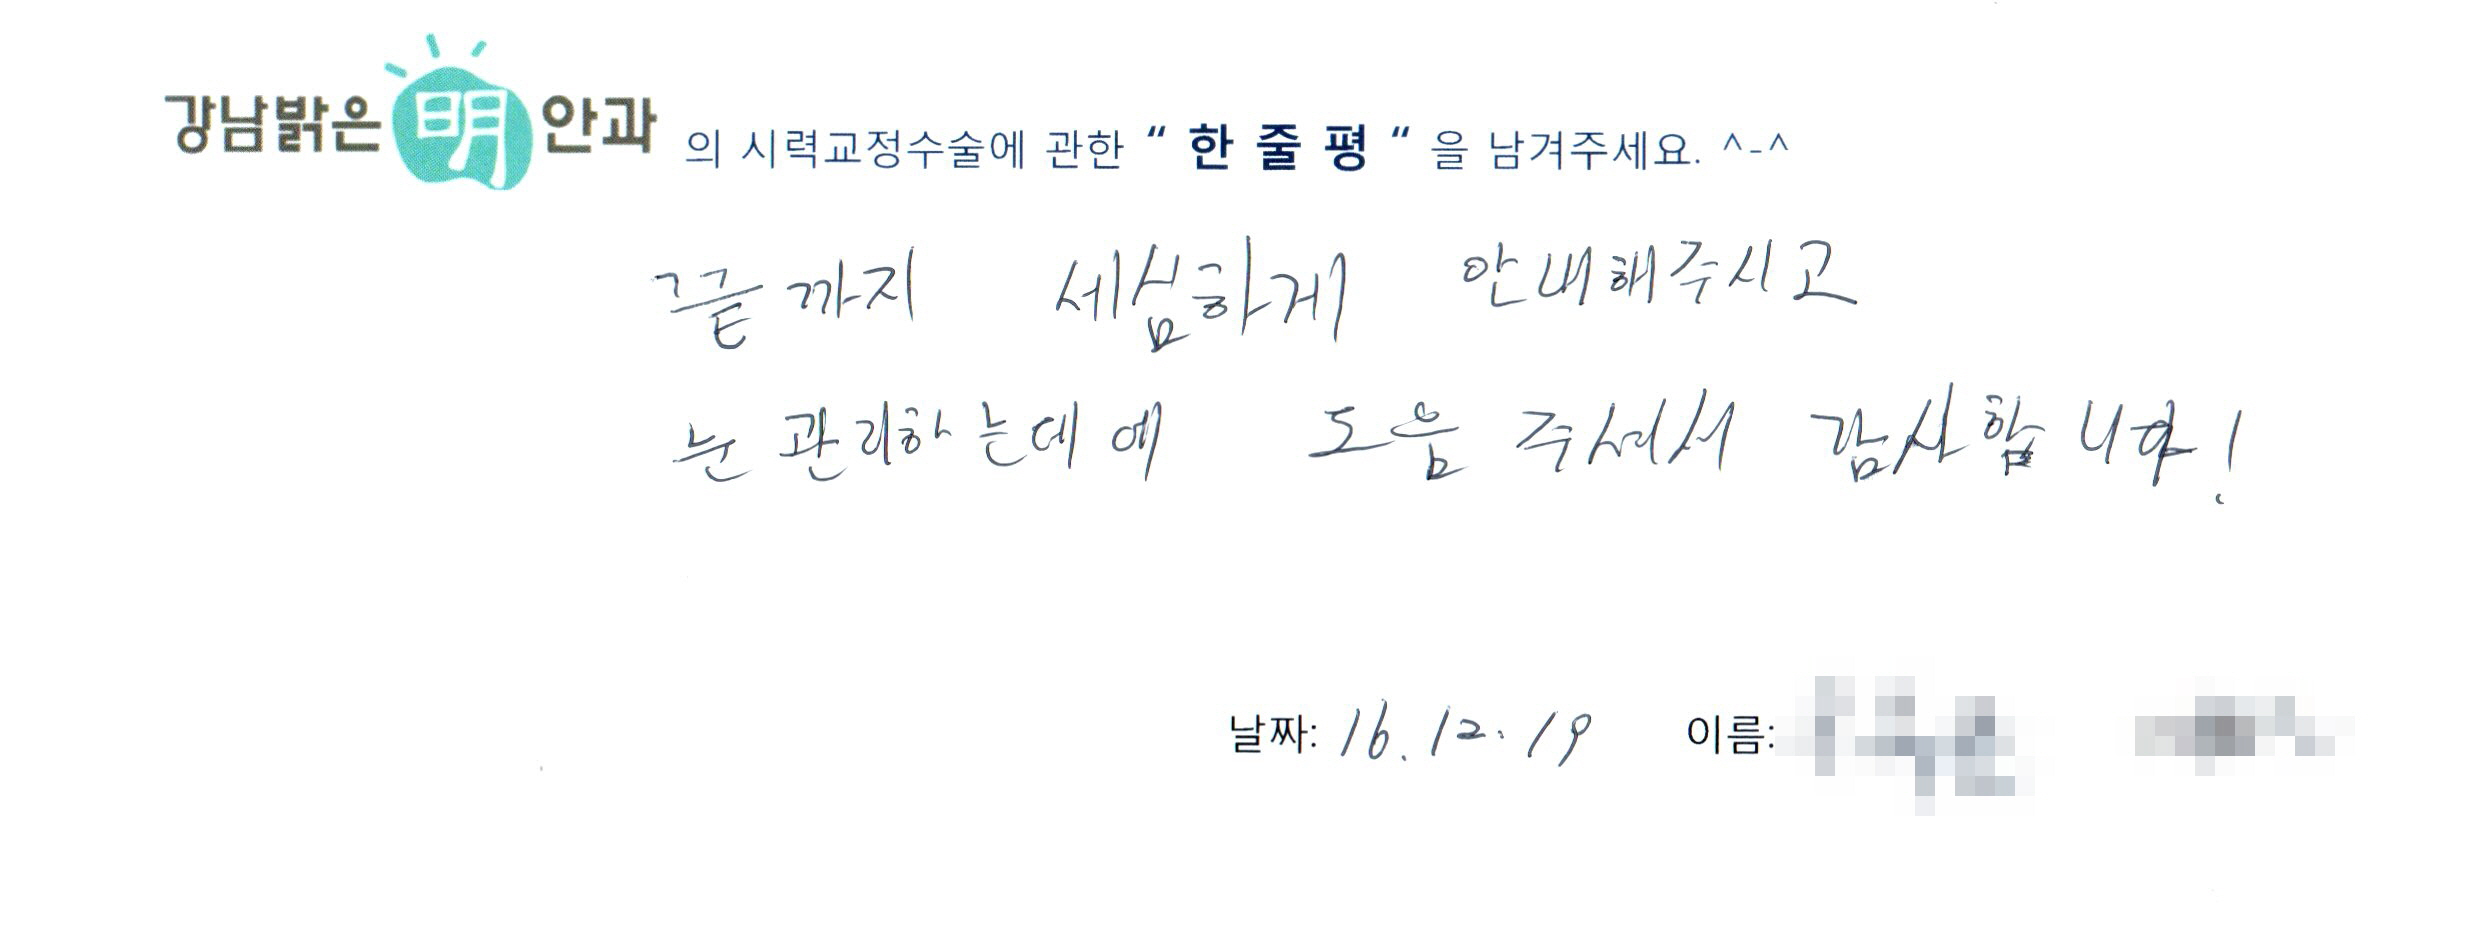 강남밝은明안과 의 시력교정수술에 관한 “ 한 줄 평 “ 을 남겨주세요. ^-^
끝까지 세심하게 안내해주시고
눈 관리하는데에 도움 주셔서 감사합니다!
날짜: 16. 12. 19 이름: